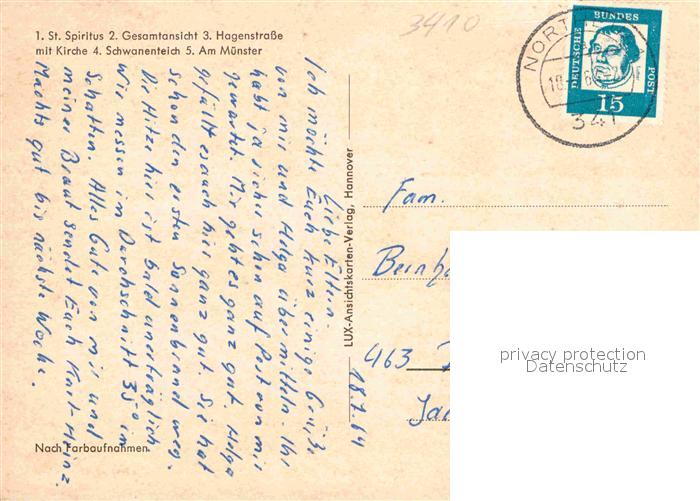 1. St. Spiritus 2. Gesamtansicht 3. Hagenstraße
mit Kirche 4. Schwanenteich 5. Am Münster
3410
NORT
18
341
DEUTSCHE
BUNDES
POST
15
18.7.64
Liebe Eltern.
Ich möchte Euch kurz einige Grüße
von mir und Helga übermitteln. Ihr
habt ja sicher schon auf Post von mir
gewartet. Mir geht es ganz gut. Helga
gefällt es auch hier ganz gut. Sie hat
schon den ersten Sonnenbrand weg.
Die Hitze hier ist bald unerträglich
Wir messen im Durchschnitt 35° im
Schatten. Alles Gute von mir und
meiner Braut sendet Euch Karl-Heinz.
Machts gut bis nächste Woche.
Nach Farbaufnahmen
LUX-Ansichtskarten-Verlag, Hannover
Fam.
Bernh
463
Ja
privacy protection
Datenschutz